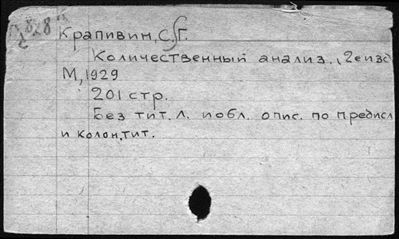 2828
Крапивин, С.Г.
Количественный анализ., 2е изд
М, 1929
201 стр.
Без тит. л. и обл. опис. по предисл
и колон, тит.